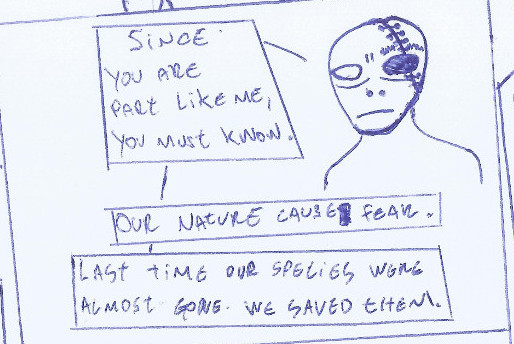 SINCE
YOU ARE
PART LIKE ME,
YOU MUST KNOW.
OUR NATURE CAUSE FEAR.
LAST TIME OUR SPECIES WERE
ALMOST GONE. WE SAVED THEM.